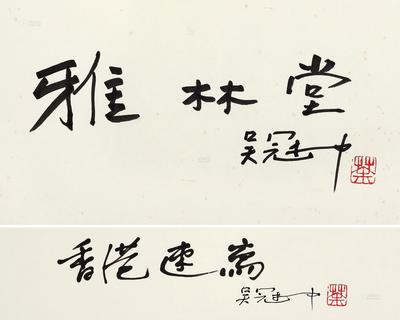 雅林堂
吴冠中
香港速寫
吴冠中